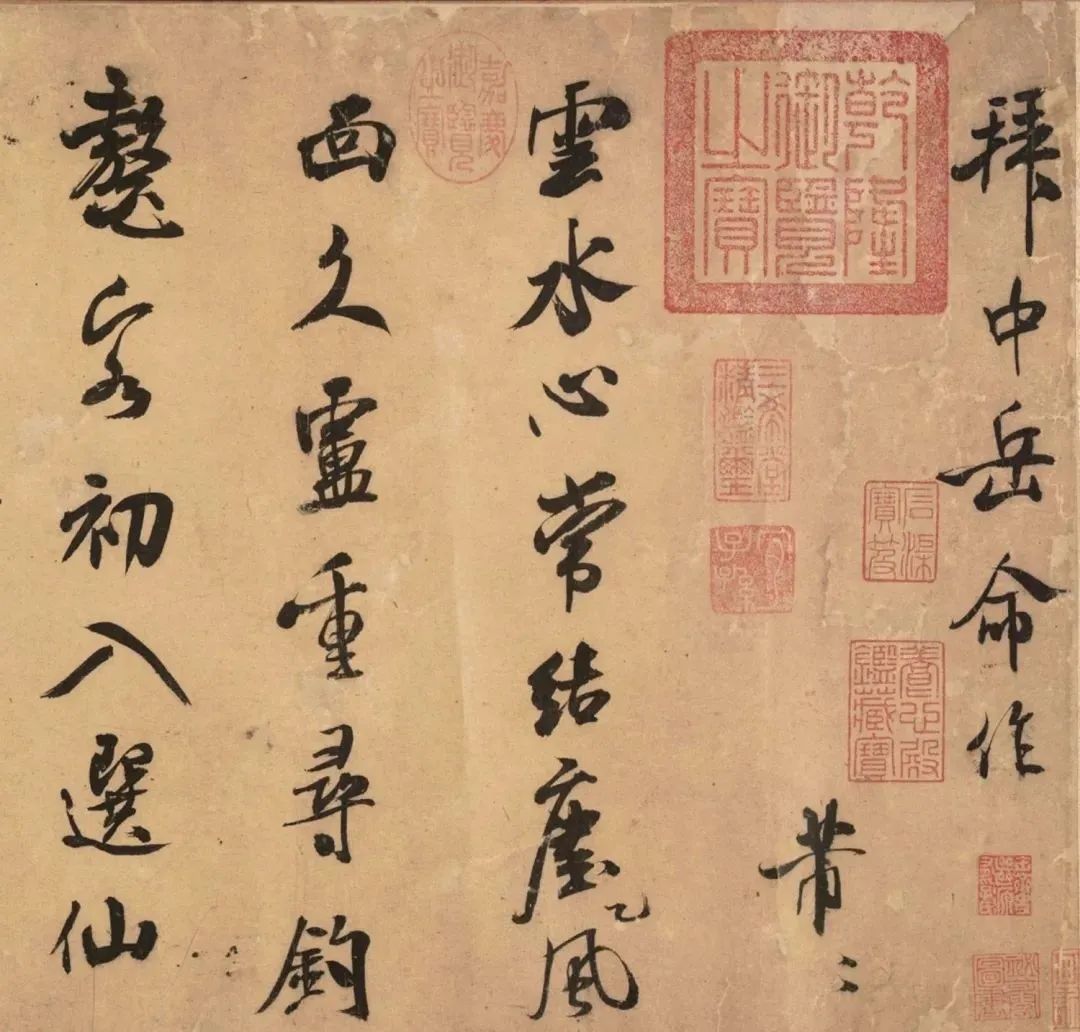 拜中岳命作
芾
乾隆御覽之寶
三希堂精鑑璽
宜子孫
石渠寶笈
養心殿鑑藏寶
雲水心常結塵風
面久盧重尋釣
嘉慶御覽之寶
鼇客初入選仙